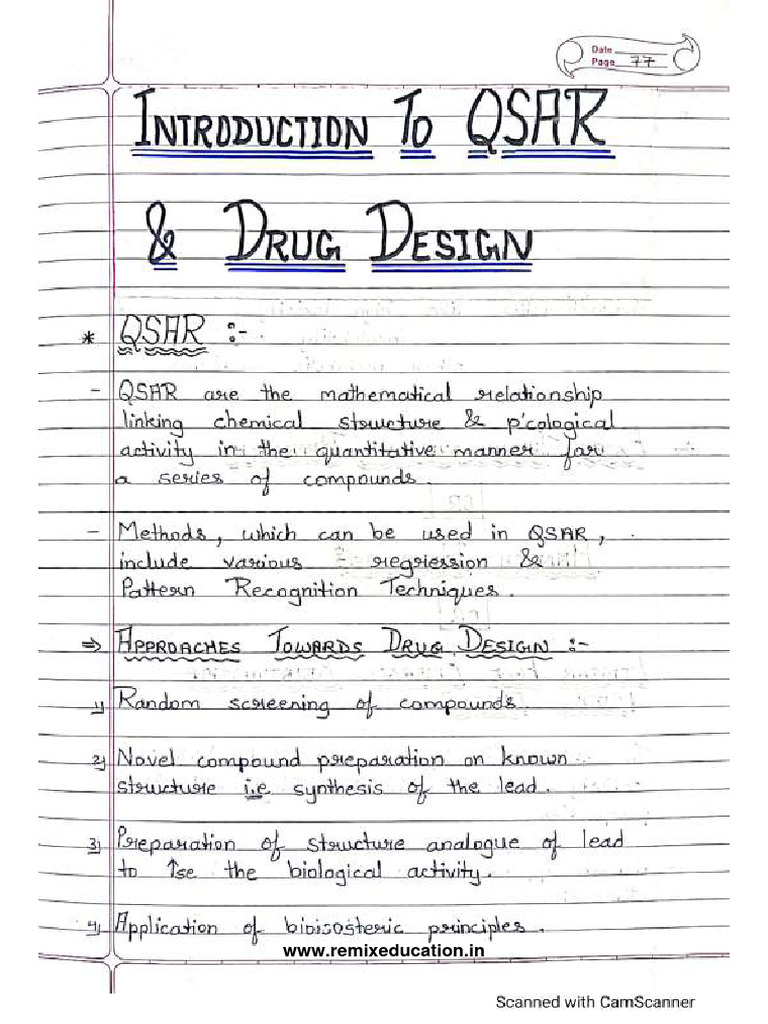 Date
Page 77
INTRODUCTION TO QSAR
& DRUG DESIGN
* QSAR :-
- QSAR are the mathematical relationship
linking chemical structure & p'cological
activity in the quantitative manner for
a series of compounds.
- Methods, which can be used in QSAR,
include various regression &
Pattern Recognition Techniques.
⇒ APPROACHES TOWARDS DRUG DESIGN :-
1) Random screening of compounds
2) Novel compound preparation on known
structure i.e synthesis of the lead.
3) Preparation of structure analogue of lead
to ↑se the biological activity.
4) Application of bioisosteric principles.
www.remixeducation.in
Scanned with CamScanner